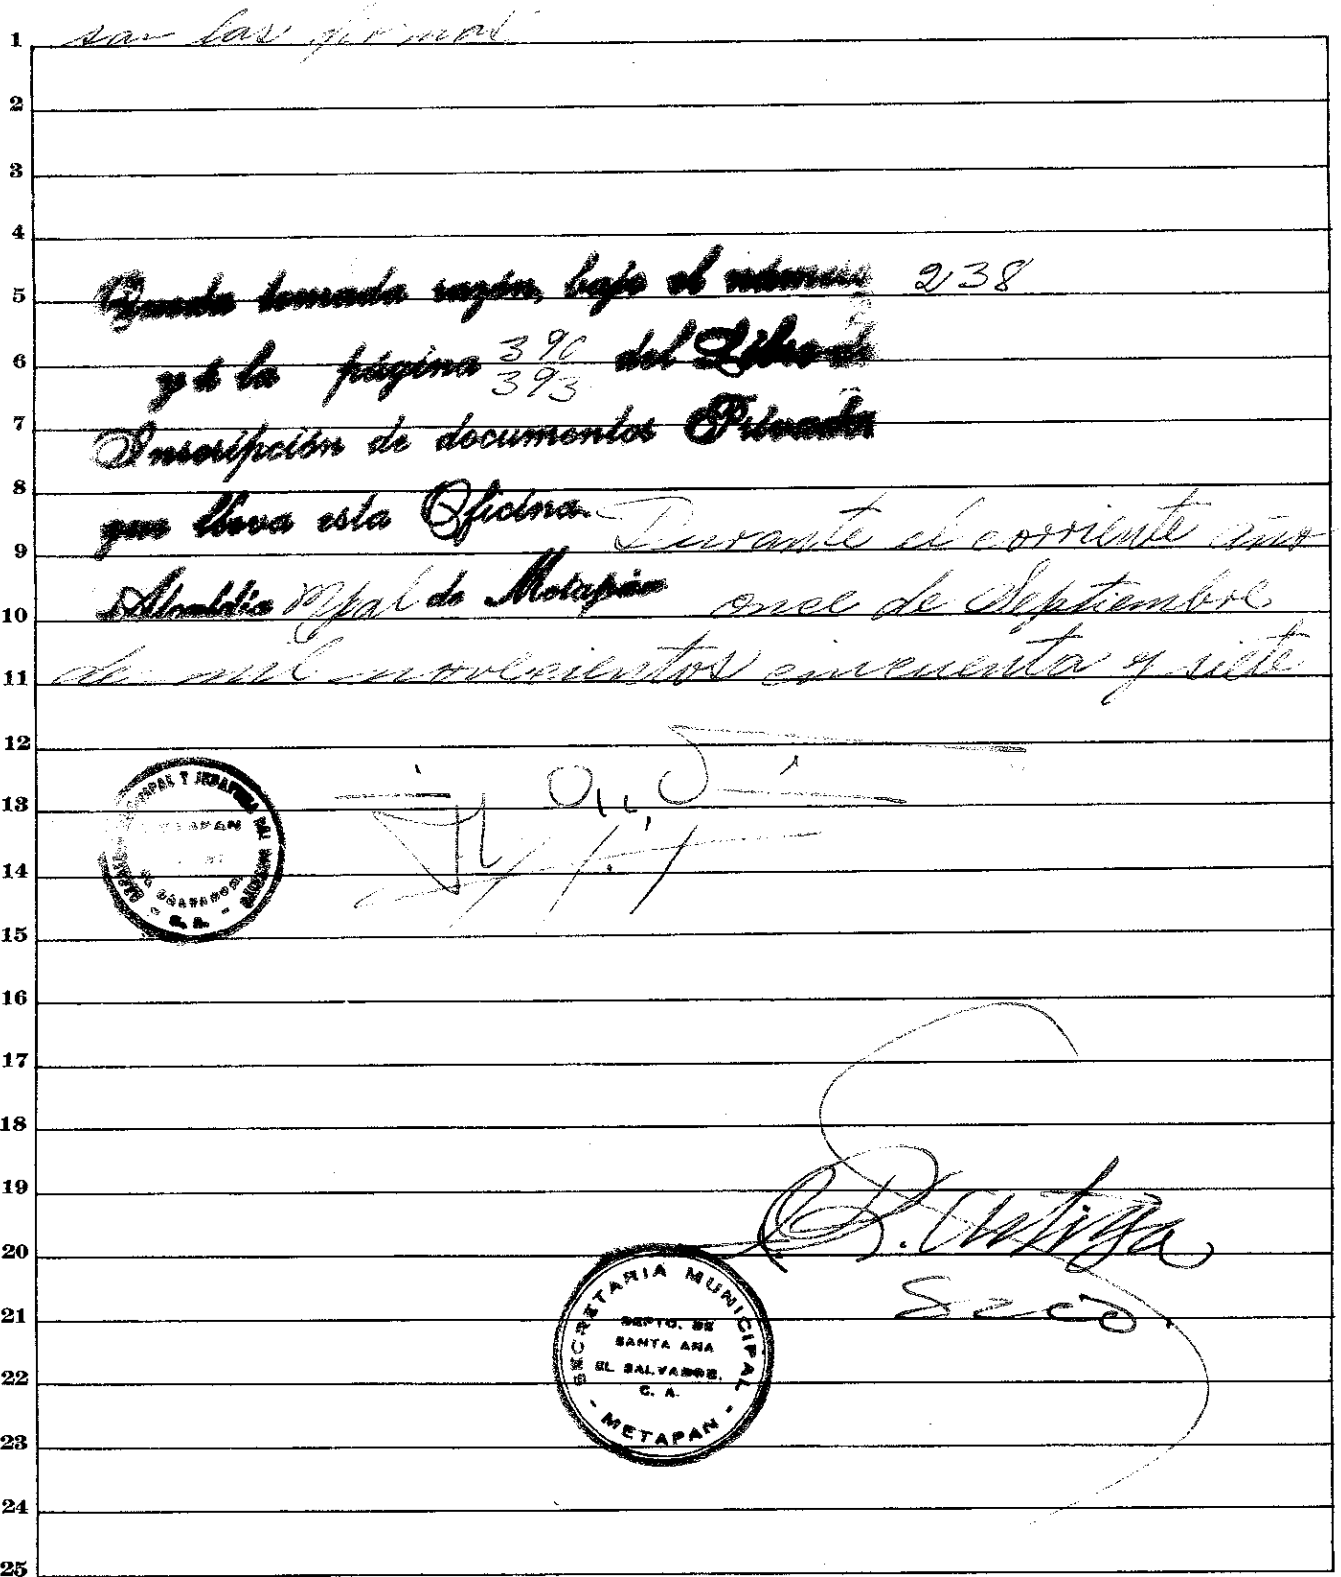 1 son las firmas
2
3
4
5 Queda tomada razón, bajo el número 238
6 y á la página 390 393 del Libro de
7 Inscripción de documentos Privados
8 que lleva esta Oficina. Durante el corriente año
9
10 Alcaldía Mpal de Metapán once de Septiembre
11 de mil novecientos cincuenta y siete
12
13
METAPAN
EL SALVADOR
14
15
16
17
18
19
20
Srio.
21
SECRETARIA MUNICIPAL
DEPTO. DE
SANTA ANA
EL SALVADOR,
C. A.
- METAPAN -
22
23
24
25